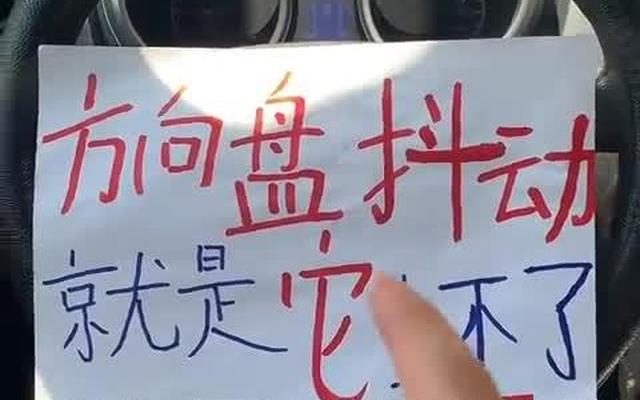 方向盘抖动
就是它不了